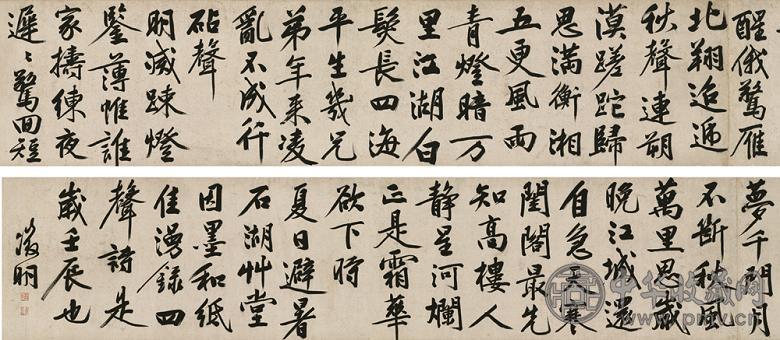 醒俄驚雁
北翔迢遞
秋聲連朔
漠蹉跎歸
思滿衡湘
五更風雨
青燈暗万
里江湖白
髮長四海
平生幾兄
弟年來凌
亂不成行
砧聲
明滅踈燈
鑒薄帷誰
家擣練夜
遲〻驚回短
夢千門月
不斷秋風
萬里思歲
晚江城還
自急天寒
閨閤最先
知高樓人
静星河爛
正是霜華
欲下時
夏日避暑
石湖艸堂
因墨和紙
佳漫錄四
聲詩是
歲壬辰也
徵明
中华收藏网